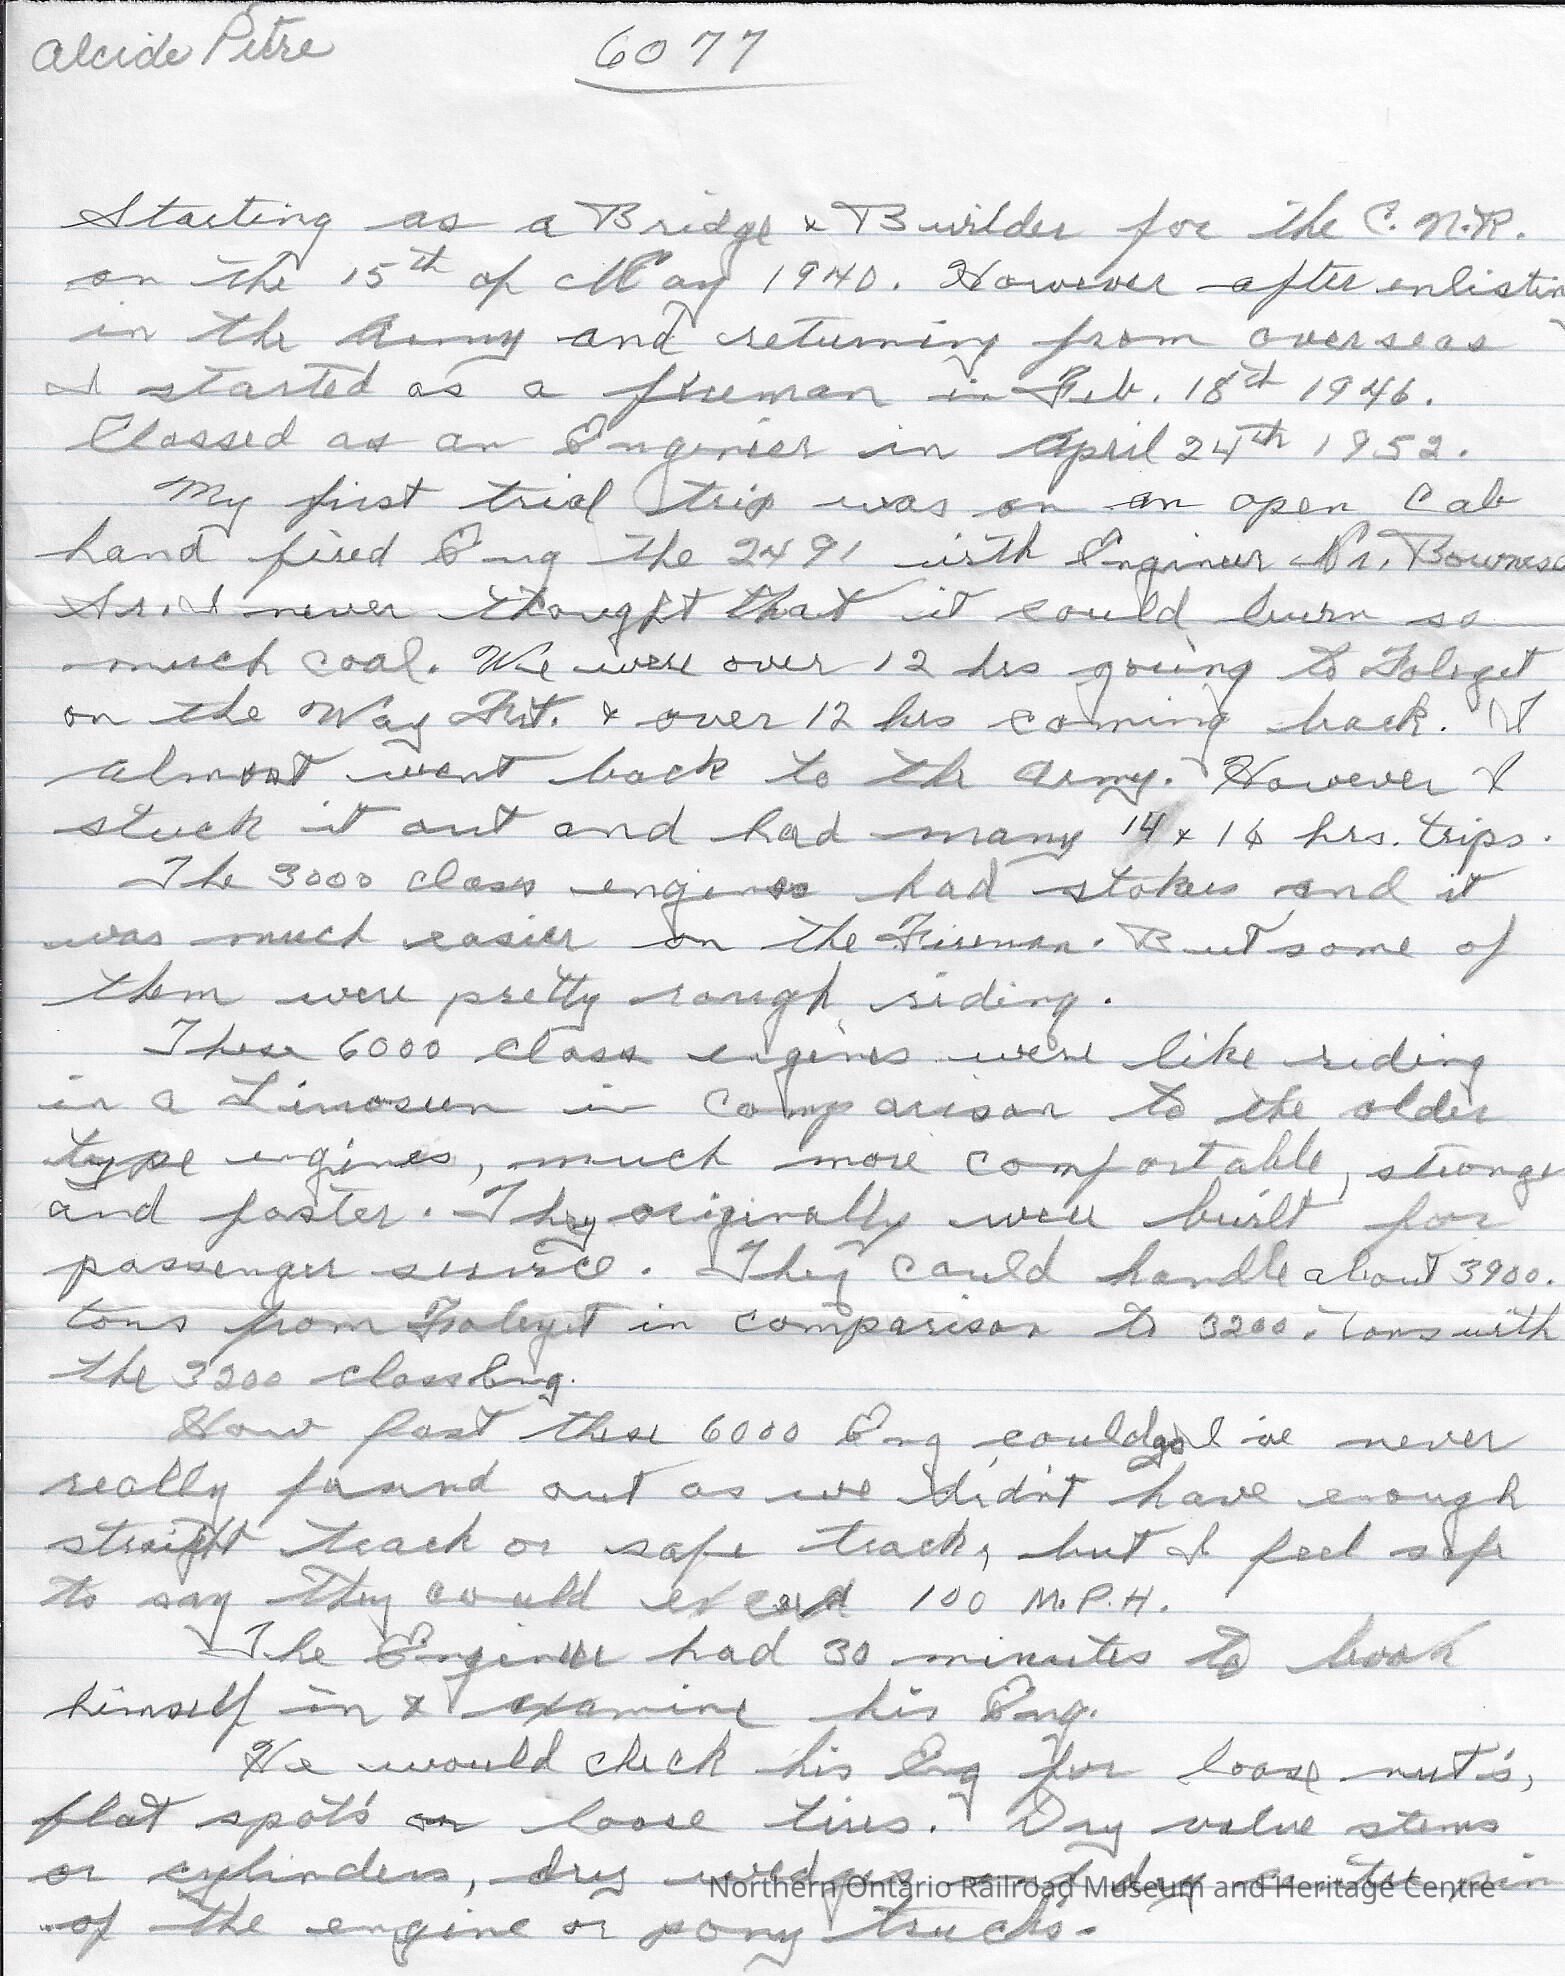 Alcide Pitre 6077
Starting as a Bridge & Builder for the C.N.R.
on the 15th of May 1940. However after enlistin
in the Army and returning from overseas
I started as a fireman in Feb. 18th 1946.
Classed as an Enginier in April 24th 1952.
My first trial trip was on an open Cab
hand fired Eng the 2491 with Engineer Mr. Bowness
Sr. I never thought that it could burn so
much coal. We were over 12 hrs going to Foleyet
on the Way Frt. & over 12 hrs coming back. I
almost went back to the Army. However I
stuck it out and had many 14 & 16 hrs. trips.
The 3000 class engines had stokers and it
was much easier on the Fireman. But some of
them were pretty rough riding.
These 6000 class engines were like riding
in a Limosun in comparison to the older
type engines, much more comfortable, stronger
and faster. They originally were built for
passenger service. They could handle about 3900.
tons from Foleyet in comparison to 3200. Tons with
the 3200 class Eng.
How fast these 6000 Eng could go I've never
really found out as we didn't have enough
straight track or safe track, but I feel safe
to say they could exceed 100 M.P.H.
The Engineer had 30 minutes to book
himself in & examine his Eng.
He would check his Eng for loose nut's,
flat spot's or loose tires. Dry valve stems
or cylinders, dry wedges and dry center pin
of the engine or pony trucks.
Northern Ontario Railroad Museum and Heritage Centre